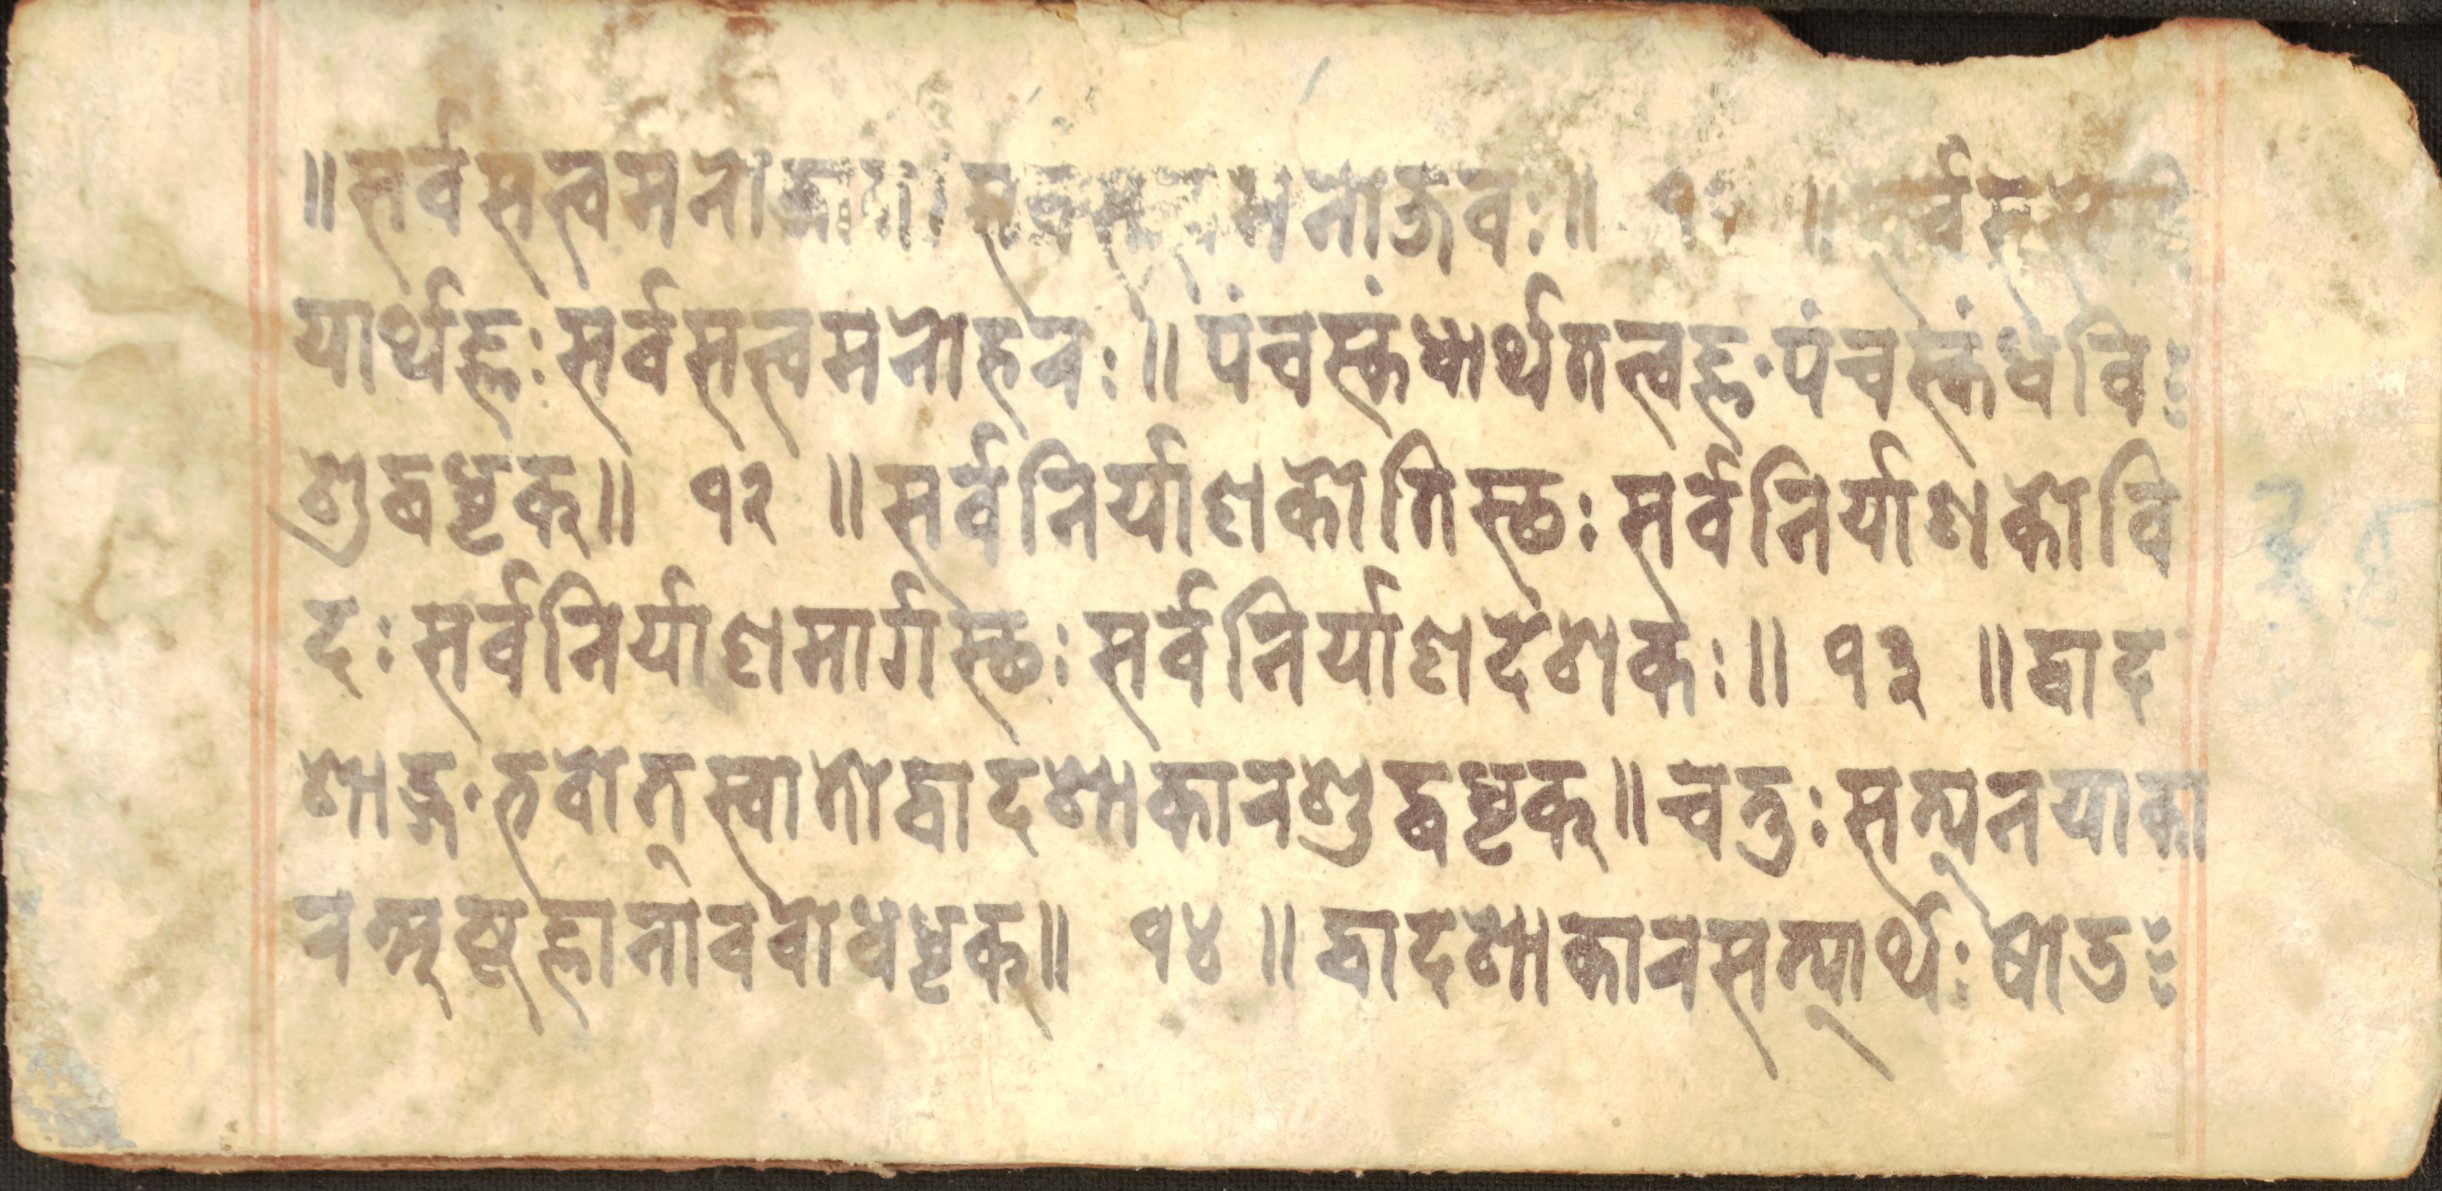 ॥सर्वसत्त्वमनोज्ञाग्रः सर्वसत्त्वमनोजवः॥ ११ ॥ सर्वसत्त्वेन्द्रि
यार्थज्ञः सर्वसत्त्वमनोहरः॥ पंचस्कंधार्थतत्त्वज्ञः पंचस्कंधवि
शुद्धधृक्॥ १२ ॥सर्वनिर्याणकोतिस्थः सर्वनिर्याणकोवि
दः सर्वनिर्याणमार्गस्थः सर्वनिर्याणदेशकः॥ १३ ॥द्वाद
शाङ्गःभवोत्खातोद्वादशाकारशुद्धधृक्॥चतुःसत्यनयाका
रअष्टज्ञानाववोधधृक्॥ १४ ॥द्वादशाकारसत्यार्थः षोड